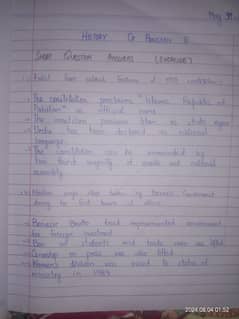 May 31
HISTORY OF PAKISTAN II
SHORT QUESTION ANSWERS
Enlist four salient features of 1973 constitution.
The constitution proclaims "Islamic Republic of
Pakistan" as official name
The constitution proclaims Islam as state religion
Urdu has been declared as national
language.
The constitution can be amended by
two third majority of senate and national
assembly.
steps taken by Benazir Government
during her first tenure of office
Benazir Bhutto tried environment
for foreign investment
Ban on students and trade unions was lifted
Censorship on press was also lifted
Women's division was raised to status of
ministry in 1989
2024.08.04 01:52